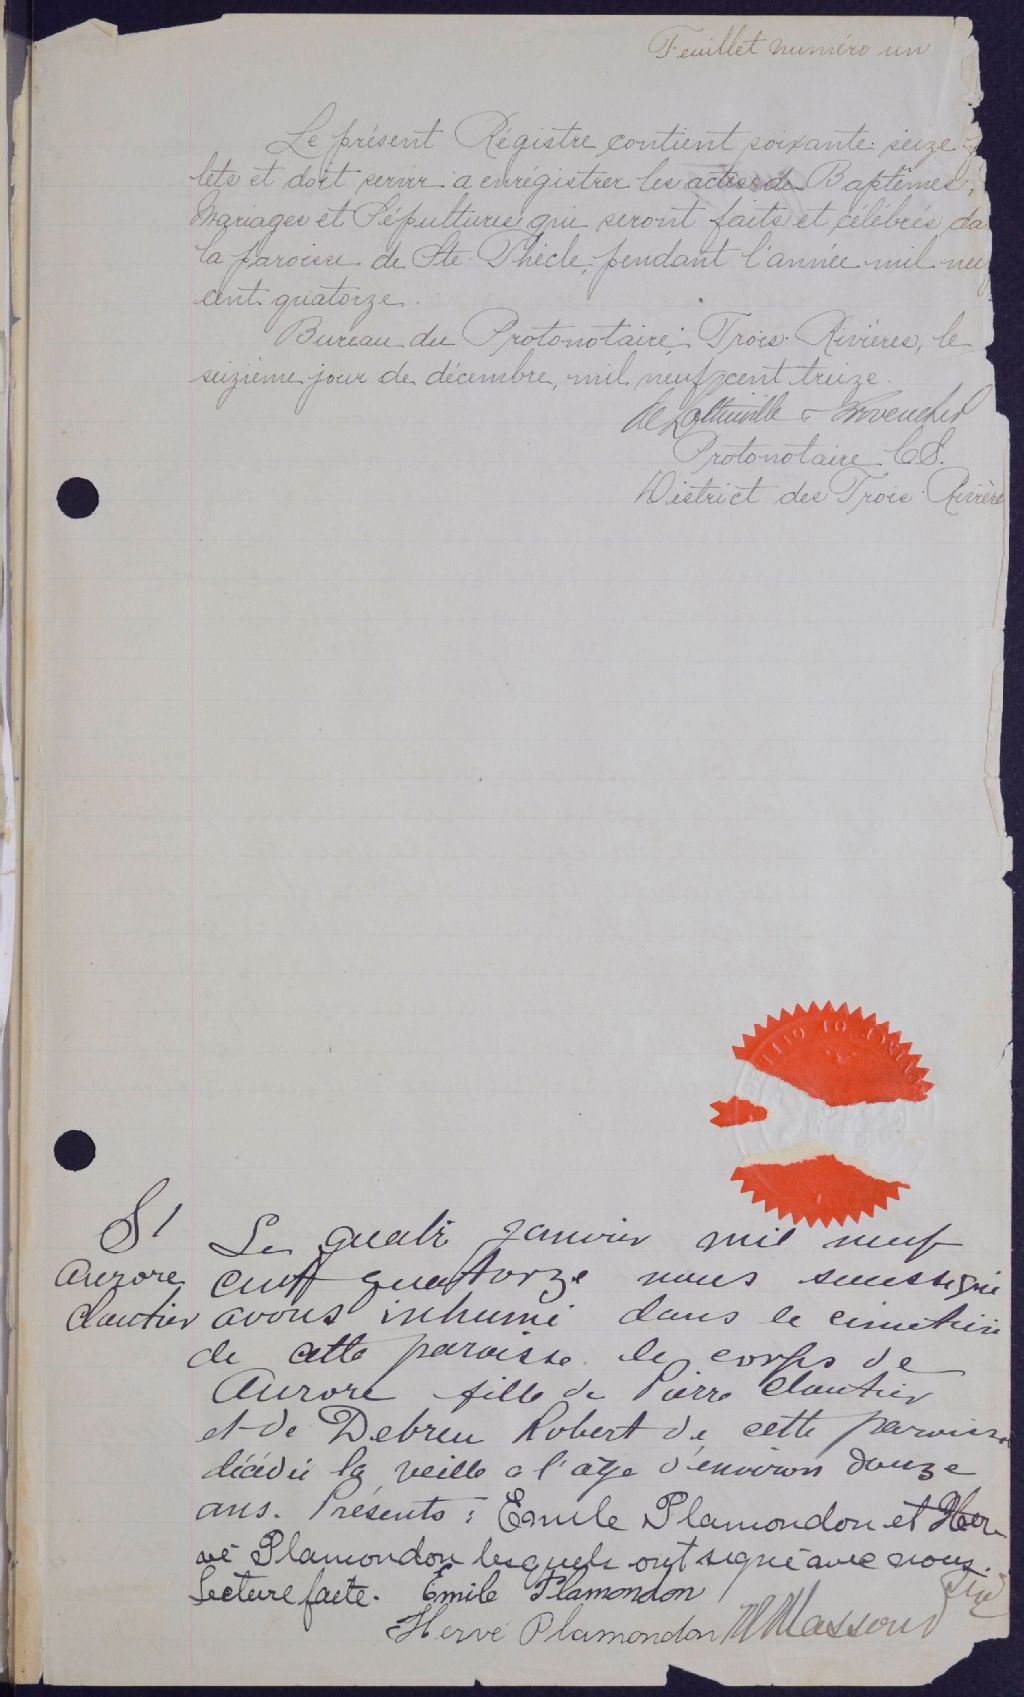 Feuillet numéro un
Le présent Régistre contient soixante-seize
lets et doit servir à enrégistrer les actes de Baptêmes,
Mariages et Sépultures qui seront faits et célébrés da
la paroisse de Ste-Thècle, pendant l'année mil neu
cent quatorze.
Bureau du Protonotaire: Trois-Rivières, le
seizième jour de décembre, mil neuf cent treize.
Protonotaire C.S.
District des Trois-Rivière
S1
Aurore
Cloutier
Le quatre janvier mil neuf
cent quatorze nous soussigné
avons inhumé dans le cimetière
de cette paroisse le corps de
Aurore fille de Pierre Cloutier
et de Robert de cette paroisse
décédée la veille a l'age d'environ douze
ans. Présents: Emile Plamondon et Her
vé Plamondon lesquels ont signé avec nous.
Lecture faite. Emile Plamondon
Hervé Plamondon Masson